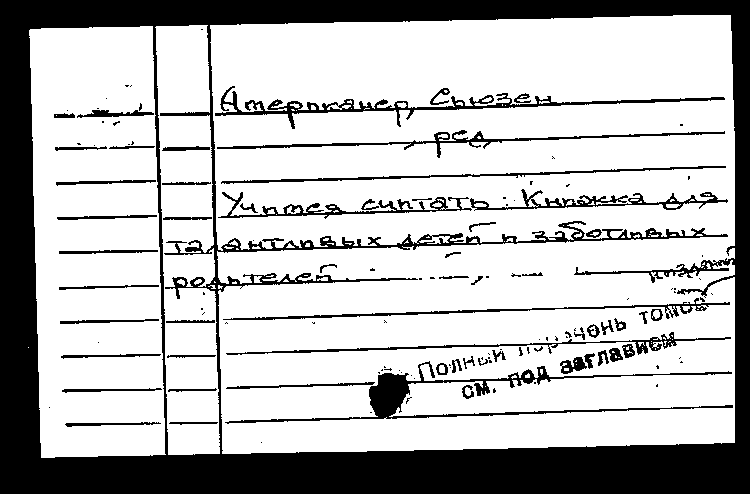 Амерпканер, Сьюзен
, ред.
Учимся считать : Книжка для
талантливых детей и заботливых
родителей.
и изданий
Полный перечень томов
см. под заглавием